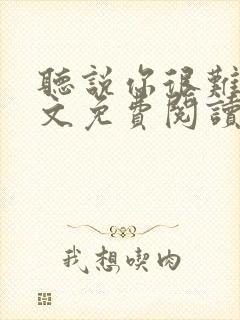 聽說你很難
文免費閱讀
我想喫肉